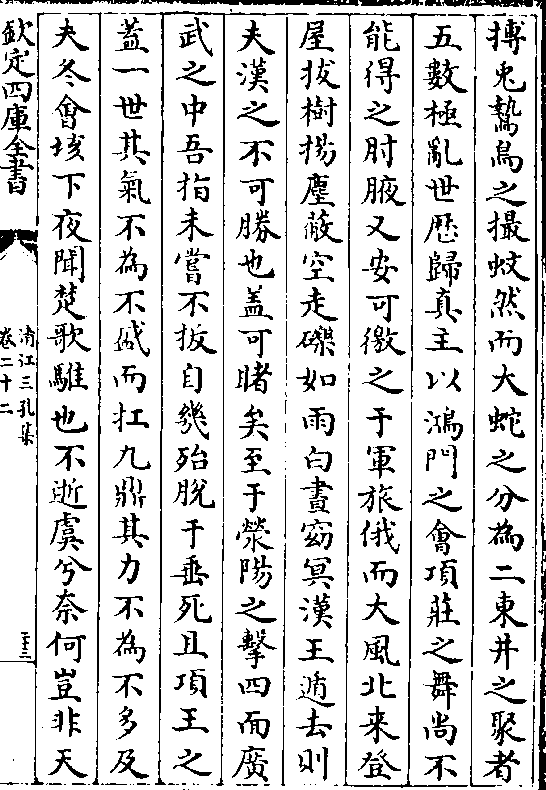 搏兎鷙鳥之撮蚊然而大蛇之分為二東井之聚者
五數極亂世厯歸真主以鴻門之會項莊之舞尚不
能得之肘腋又安可徼之于軍旅俄而大風北来登
屋拔樹揚塵蔽空走礫如雨白晝窈冥漢王遁去則
夫漢之不可勝也盖可睹矣至于滎陽之擊四而廣
武之中吾指未嘗不扳自幾殆脱于垂死且項王之
蓋一世其氣不為不盛而扛九鼎其力不為不多及
夫冬會垓下夜聞楚歌騅也不逝虞兮奈何豈非天
欽定四庫全書
清江三孔集
卷二十二